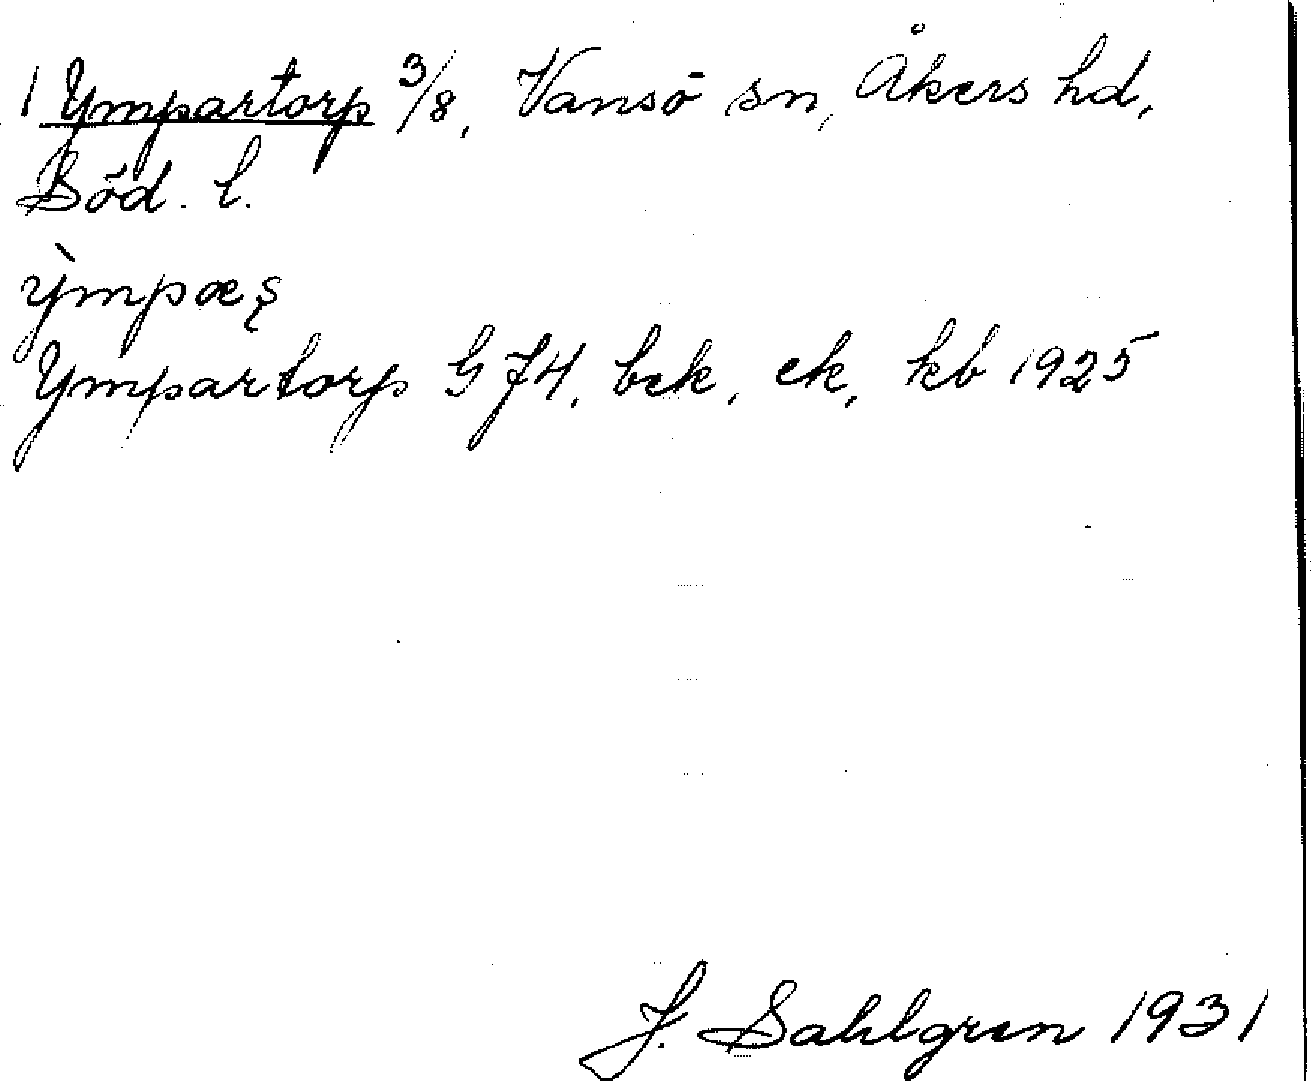 1 Ympartorp 3/8, Vansö sn, Åkers hd,
Söd. l.
ỳmpaʂ
Ympartorp G J 4, bek, ek, kb 1925
J. Sahlgren 1931